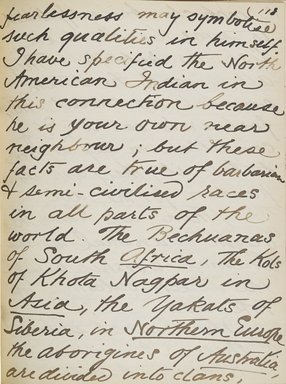 113
fearlessness may symbolise
such qualities in himself.
I have specified the North
American Indian in
this connection because
he is your own near
neighbour; but these
facts are true of barbarian
& semi-civilised races
in all parts of the
world. The Bechuanas
of South Africa, the Kols
of Khota Nagpar in
Asia, the Yakats of
Siberia, in Northern Europe
the aborigines of Australia,
are divided into clans,